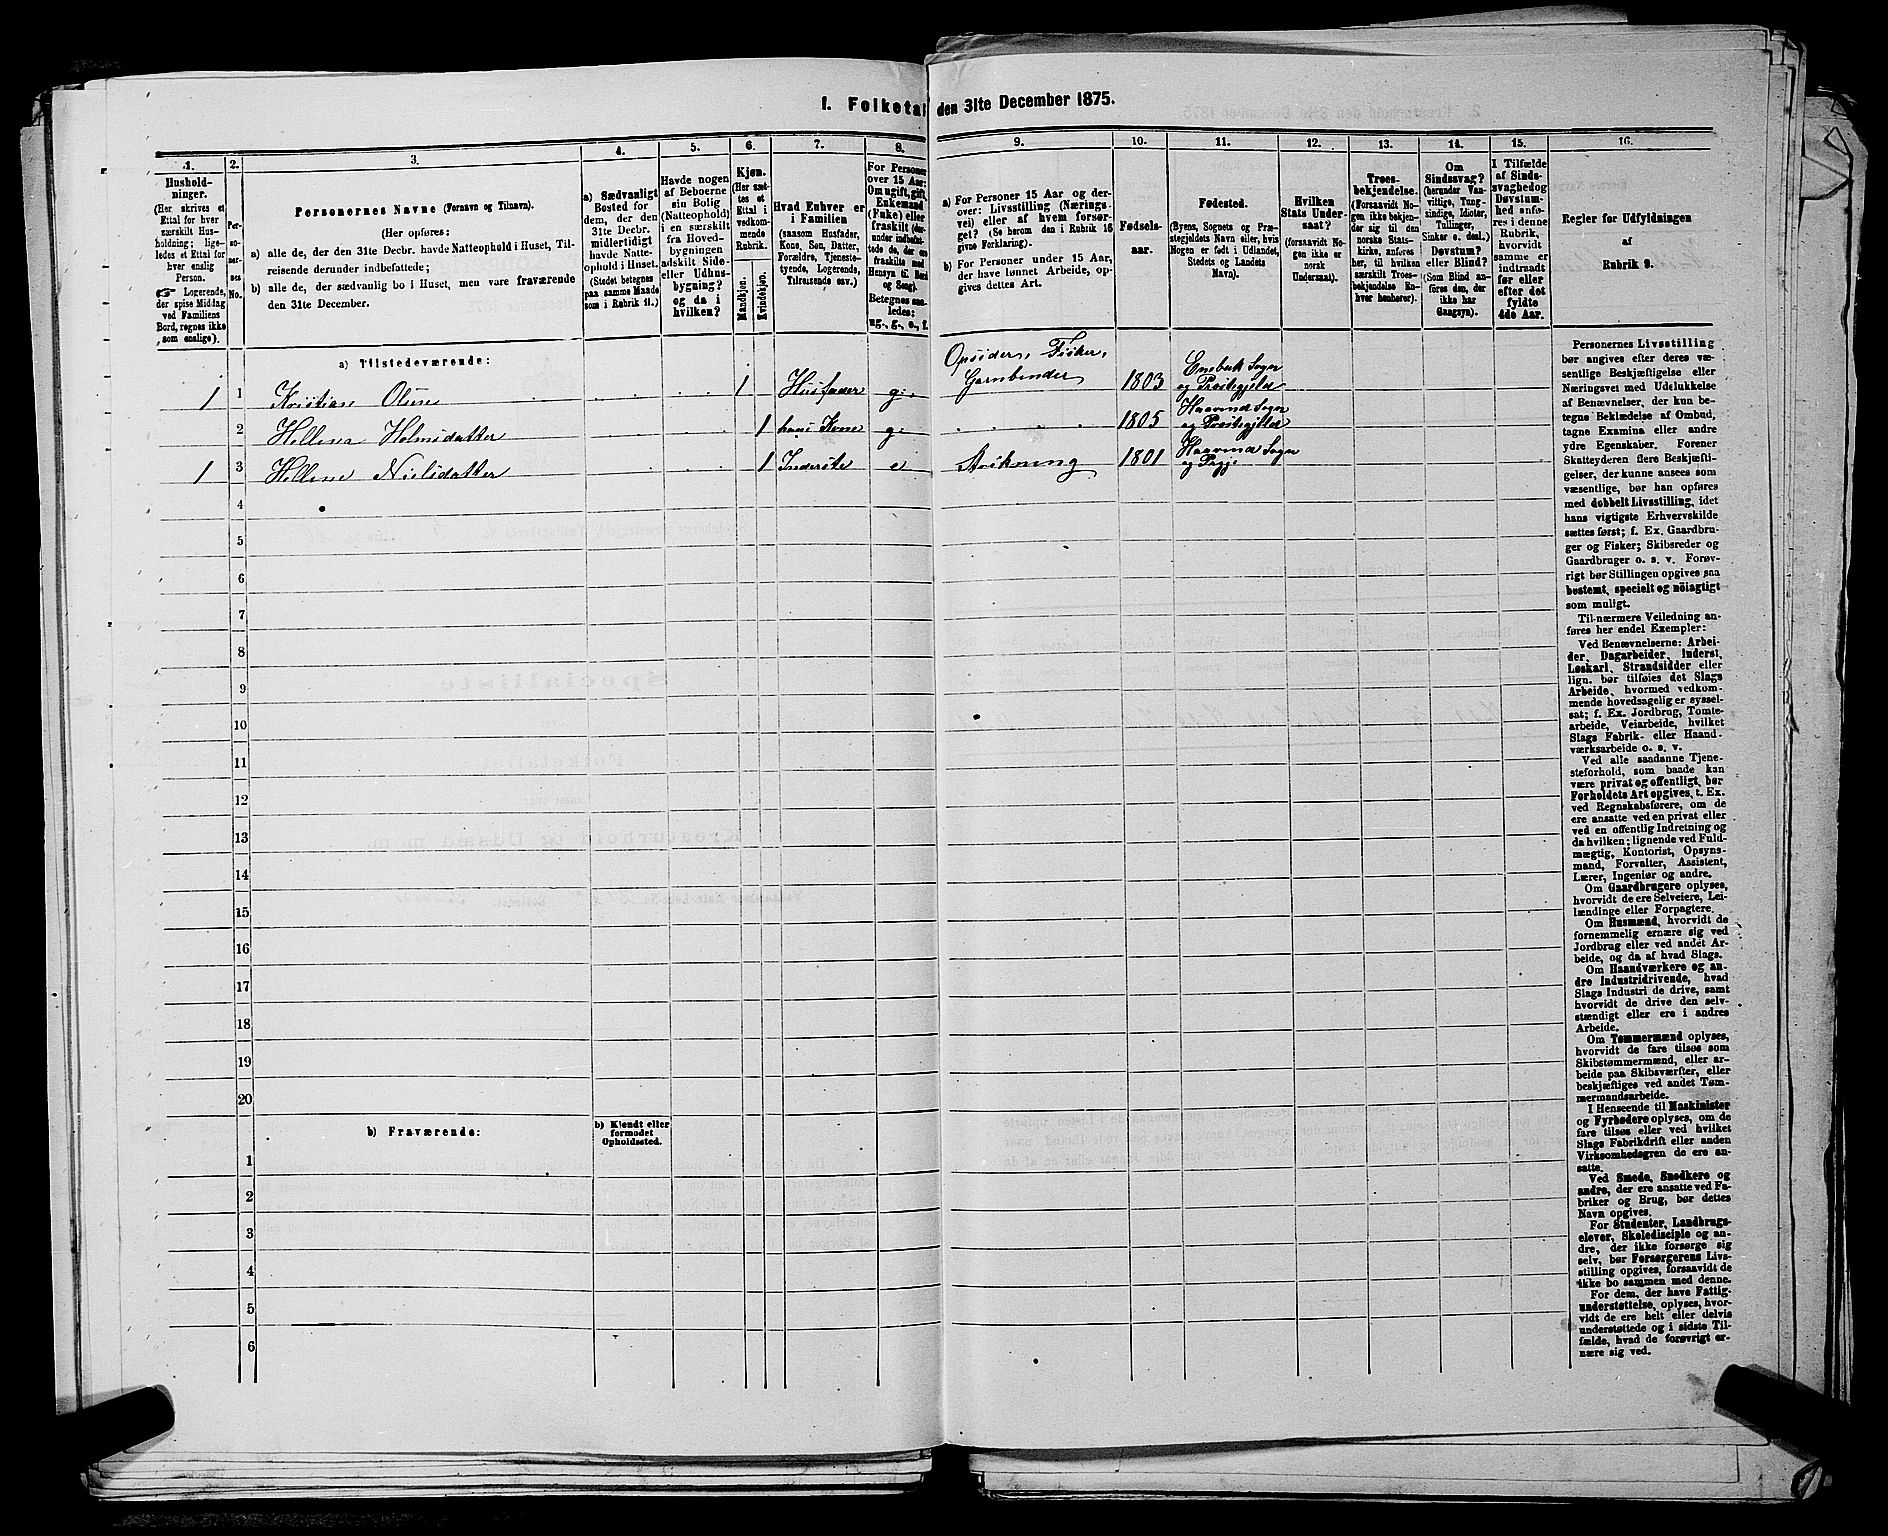 1. Folketal den 31te December 1875.
1.
Hushold-
ninger.
(Her skrives et
Ettal for hver
særskilt Hus-
holdning; lige-
ledes et Ettal for
hver enslig
Person.
Logerende,
der spise Middag
ved Familiens
Bord, regnes ikke
som enslige).
2.
Per-
so-
ner-
nes
No.
3.
Personernes Navne (Fornavn og Tilnavn).
(Her opføres:
a) alle de, der den 31te Decbr. havde Natteophold i Huset, Til-
reisende derunder indbefattede;
b) alle de, der sædvanlig bo i Huset, men vare fraværende
den 31te December.
4.
a) Sædvanligt
Bosted for
dem, der den
31te Decbr.
midlertidigt
havde Natte-
ophold i Huset.
(Stedet betegnes
paa samme Maade
som i Rubrik 11.)
5.
Havde nogen
af Beboerne
sin Bolig
(Natteophold)
i en særskilt
fra Hoved-
bygningen
adskilt Side-
eller Udhus-
bygning?
og da i
hvilken?
6.
Kjøn.
(Her sæt-
tes et
Ettal i
vedkom-
mende
Rubrik.
Mandkjøn.
Kvindekjøn.
7.
Hvad Enhver er
i Familien
(saasom Husfader,
Kone, Søn, Datter,
Forældre, Tjeneste-
tyende, Logerende,
Tilreisende osv.)
8.
For Personer
over 15 Aar:
Om ugift, gift,
Enkemand
(Enke) eller
fraskilt (der-
under indbefat-
tede de, der ere
fraskilte med
Hensyn til Bord
og Seng).
Betegnes saa-
ledes:
ug., g., e., f.
9.
a) For Personer 15 Aar og der-
over: Livsstilling (Nærings-
vei) eller af hvem forsør-
get? (Se herom den i Rubrik 16
givne Forklaring).
b) For Personer under 15 Aar,
der have lønnet Arbeide, op-
gives dettes Art.
10.
Fødsels-
aar.
11.
Fødested.
(Byens, Sognets og Præ-
stegjeldets Navn eller, hvis
Nogen er født i Udlandet,
Stedets og Landets
Navn).
12.
Hvilken
Stats Under-
saat?
(forsaavidt No-
gen ikke er
norsk
Undersaat).
13.
Troes-
bekjendelse.
(Forsaavidt No-
gen ikke bekjen-
der sig til den
norske Stats-
kirke, anføres
her, til hvilken
særskilt Troes-
bekjendelse En-
hver henhører).
14.
Om
Sindssvag?
(herunder Van-
vittige, Tung-
sindige, Idioter,
Tullinger,
Sinker o. desl.)
Døvstum?
eller Blind?
(Som Blind an-
føres den, der
ikke har
Gangsyn).
15.
I Tilfælde
af Sinds-
svaghed og
Døvstum-
hed anfø-
res i denne
Rubrik,
hvorvidt
samme er
indtraadt
før eller
efter det
fyldte
4de Aar.
16.
Regler for Udfyldningen
af
Rubrik 9.
a) Tilstedeværende:
1 1 Kristian Olsen 1 Husfader g. Opsider, Fisker, Garnbinder 1803 Enebak Sogn og Præstegjeld
2 Hellena Holmsdatter 1 hans Kone g. 1805 Haavind Sogn og Præstegjeld
1 3 Hellene Nielsdatter 1 Inderste e 1801 Haavind Sogn og Prgje
4
5
6
7
8
9
10
11
12
13
14
15
16
17
18
19
20
b) Fraværende:
b) Kjendt eller
formodet
Opholdssted.
1
2
3
4
5
6
Personernes Livsstilling
bør angives efter deres væ-
sentlige Beskjæftigelse eller
Næringsvei med Udelukkelse
af Benævnelser, der kun be-
tegne Beklædelse af Ombud,
tagne Examina eller andre
ydre Egenskaber. Forener
Skatteyderen flere Beskjæfti-
gelser, der kunne ansees som
væsentlige, bør han opføres
med dobbelt Livsstilling, idet
hans vigtigste Erhvervskilde
sættes først; f. Ex. Gaardbru-
ger og Fisker; Skibsreder og
Gaardbruger o. s. v. Forøv-
rigt bør Stillingen opgives saa
bestemt, specielt og nöiagtigt
som muligt.
Til nærmere Veiledning an-
føres her endel Exempler:
Ved Benævnelserne: Arbei-
der, Dagarbeider, Inderst,
Løskarl, Strandsidder eller
lign. bør tilføies det Slags
Arbeide, hvormed vedkom-
mende hovedsagelig er syssel-
sat; f. Ex. Jordbrug, Tomte-
arbeide, Veiarbeide, hvilket
Slags Fabrik- eller Haand-
værksarbeide o. s. v.
Ved alle saadanne Tjene-
steforhold, som baade kan
være privat og offentligt, bør
Forholdets Art opgives, t. Ex.
ved Regnskabsførere, om de
ere ansatte ved en privat eller
ved en offentlig Indretning og
da hvilken; lignende ved Fuld-
mægtig, Kontorist, Opsyns-
mand, Forvalter, Assistent,
Lærer, Ingeniør og andre.
Om Gaardbrugere oplyses,
hvorvidt de ere Selveiere, Lei-
lændinge eller Forpagtere.
Om Husmænd, hvorvidt de
fornemmelig ernære sig ved
Jordbrug eller ved andet Ar-
beide, og da af hvad Slags.
Om Haandværkere og an-
dre Industridrivende, hvad
Slags Industri de drive, samt
hvorvidt de drive den selv-
stændigt eller ere i andres
Arbeide.
Om Tømmermænd oplyses,
hvorvidt de fare tilsøs som
Skibstømmermænd, eller ar-
beide paa Skibsværfter, eller
beskjæftiges ved andet Tøm-
mermandsarbeide.
I Henseende til Maskinister
og Fyrbødere oplyses, om de
fare tilsøs eller ved hvilket
Slags Fabrikdrift eller anden
Virksomhedsgren de ere an-
satte.
Ved Smede, Snedkere og
andre, der ere ansatte ved Fa-
briker og Brug, bør dettes
Navn opgives.
For Studenter, Landbrugs-
elever, Skoledisciple og an-
dre, der ikke forsørge sig
selv, bør Forsørgerens Livs-
stilling opgives, forsaavidt de
ikke bo sammen med denne.
For dem, der have Fattig-
understøttelse, oplyses, hvor-
vidt de ere helt eller delvis
understøttede og i sidste Til-
fælde, hvad de forøvrigt er-
nære sig ved.